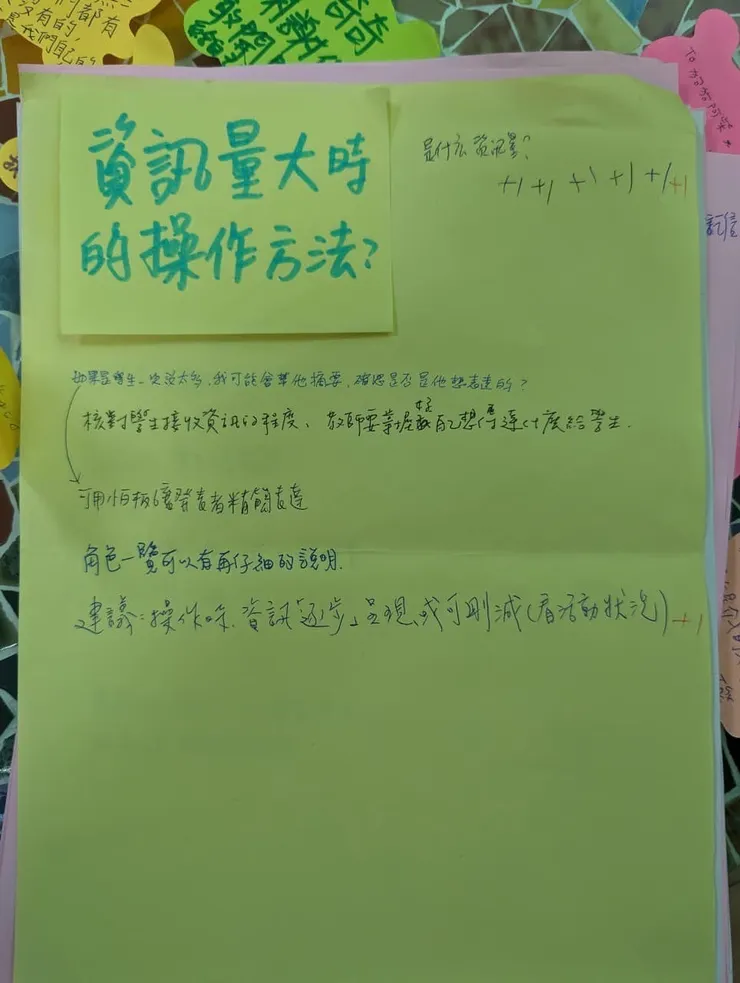 都有
有的,
我們自己的
資訊量大時
的操作方法?
是什么資訊量?
+1 +1 +1 +1 +1 +1
如果是學生一次說太多,我可能會幫他摘要,確認是否是他想表達的?
核對學生接收資訊的程度、教師要掌握好自己想傳達什麼給學生.
可用小白板讓發表者精簡表達
角色一覽可以有再仔細的說明.
建議:操作時.資訊「逐步」呈現、或可刪減(看活動狀況) +1